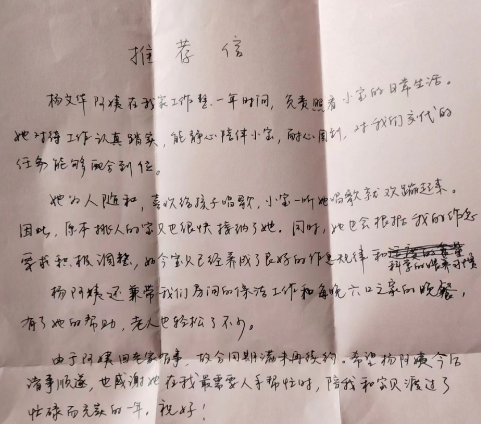 推荐信
杨文华阿姨在我家工作整一年时间，负责照看小宝的日常生活。
她对待工作认真踏实，能静心陪伴小宝，耐心周到，对我们交代的
任务能够配合到位。
她为人随和，喜欢给孩子唱歌，小宝一听她唱歌就欢蹦起来。
因此，原不挑人的宝贝也很快接纳了她。同时，她也会根据我的作息
要求积极调整，如今宝贝已经养成了良好的作息规律和
科学的喂养习惯
杨阿姨还兼带我们房间的保洁工作和每晚六口之家的晚餐，
有了她的帮助，老人也轻松了不少。
由于阿姨回老家有事，故合同期满未再续约。希望杨阿姨今后
诸事顺遂，也感谢她在我最需要人手帮忙时，陪我和宝贝渡过了
忙碌而充实的一年。祝好！